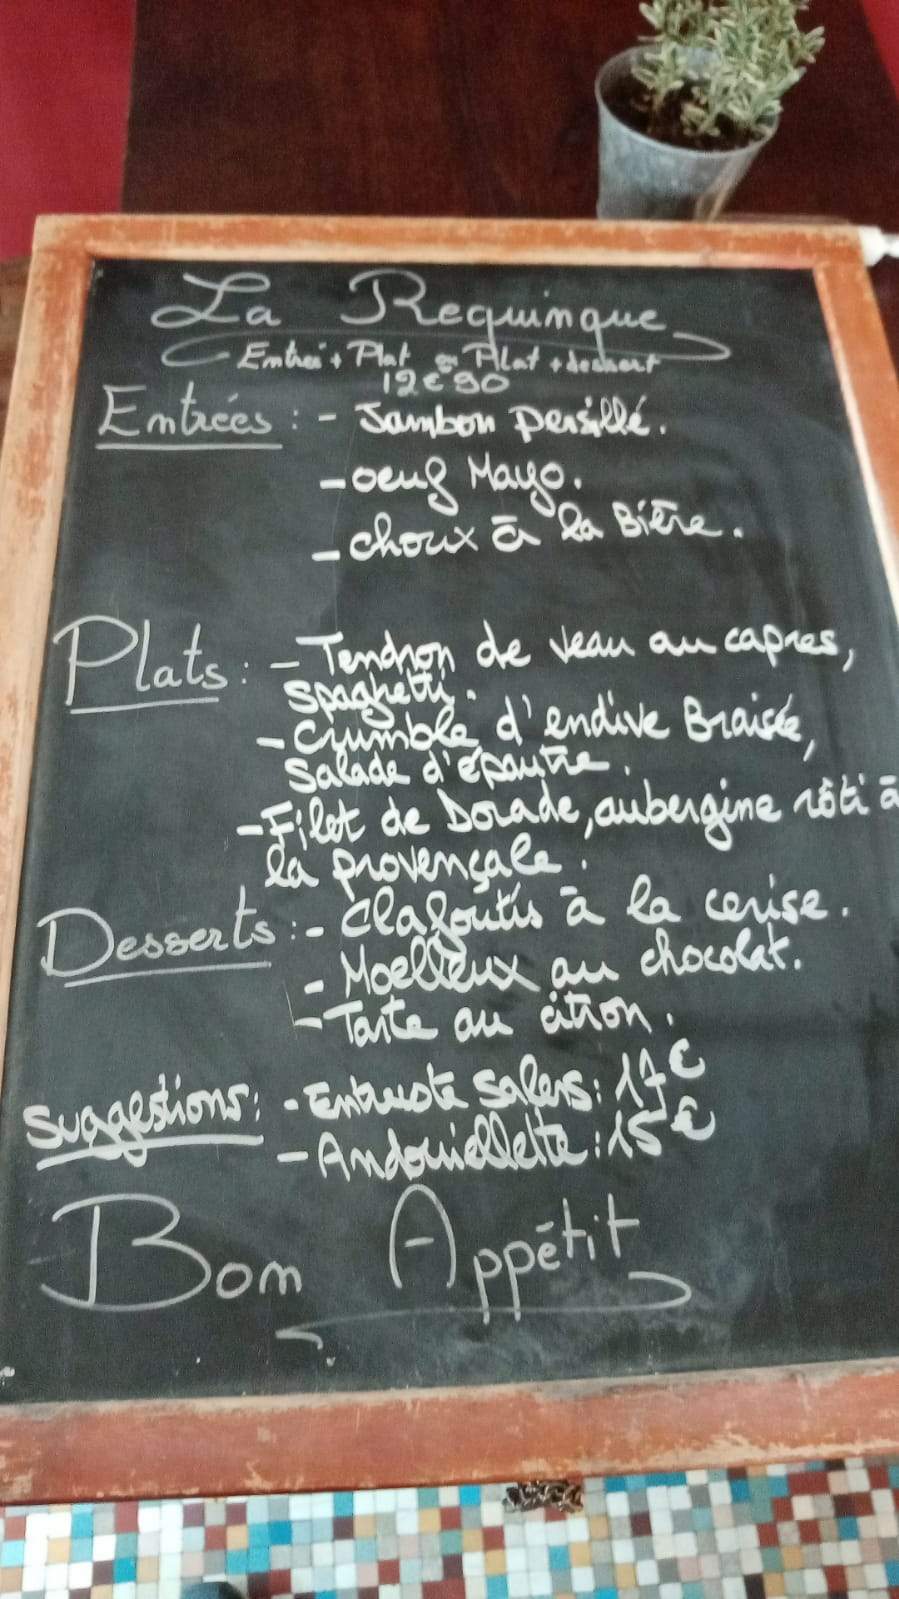 La Requinque
Entrée + Plat ou Plat + dessert
12€90
Entrées : - Jambon persillé.
- oeuf Mayo.
- choux à la Bière.
Plats : - Tendron de veau au capres,
Spaghetti.
- Crumble d'endive Braisée,
Salade d'épautre.
- Filet de Dorade, aubergine rôti à
la provençale.
Desserts : - Clafoutis à la cerise.
- Moelleux au chocolat.
- Tarte au citron.
Suggestions : - Entrecote Salers : 17€
- Andouiellette : 15€
Bon Appétit